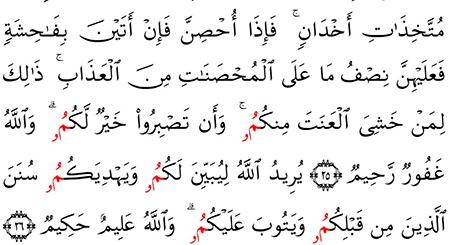 مُتَّخِذَٰتِ أَخْدَانٍۚ فَإِذَا أُحْصِنَّ فَإِنْ أَتَيْنَ بِفَٰحِشَةٍ
فَعَلَيْهِنَّ نِصْفُ مَا عَلَى الْمُحْصَنَٰتِ مِنَ الْعَذَابِۚ ذَٰلِكَ
لِمَنْ خَشِيَ الْعَنَتَ مِنكُمُۥۚ وَأَن تَصْبِرُوا۟ خَيْرٌ لَّكُمُۥۗ وَاللَّهُ
غَفُورٌ رَّحِيمٌ ٢٥ يُرِيدُ اللَّهُ لِيُبَيِّنَ لَكُمُۥ وَيَهْدِيَكُمُۥ سُنَنَ
الَّذِينَ مِن قَبْلِكُمُۥ وَيَتُوبَ عَلَيْكُمُۥۗ وَاللَّهُ عَلِيمٌ حَكِيمٌ ٢٦